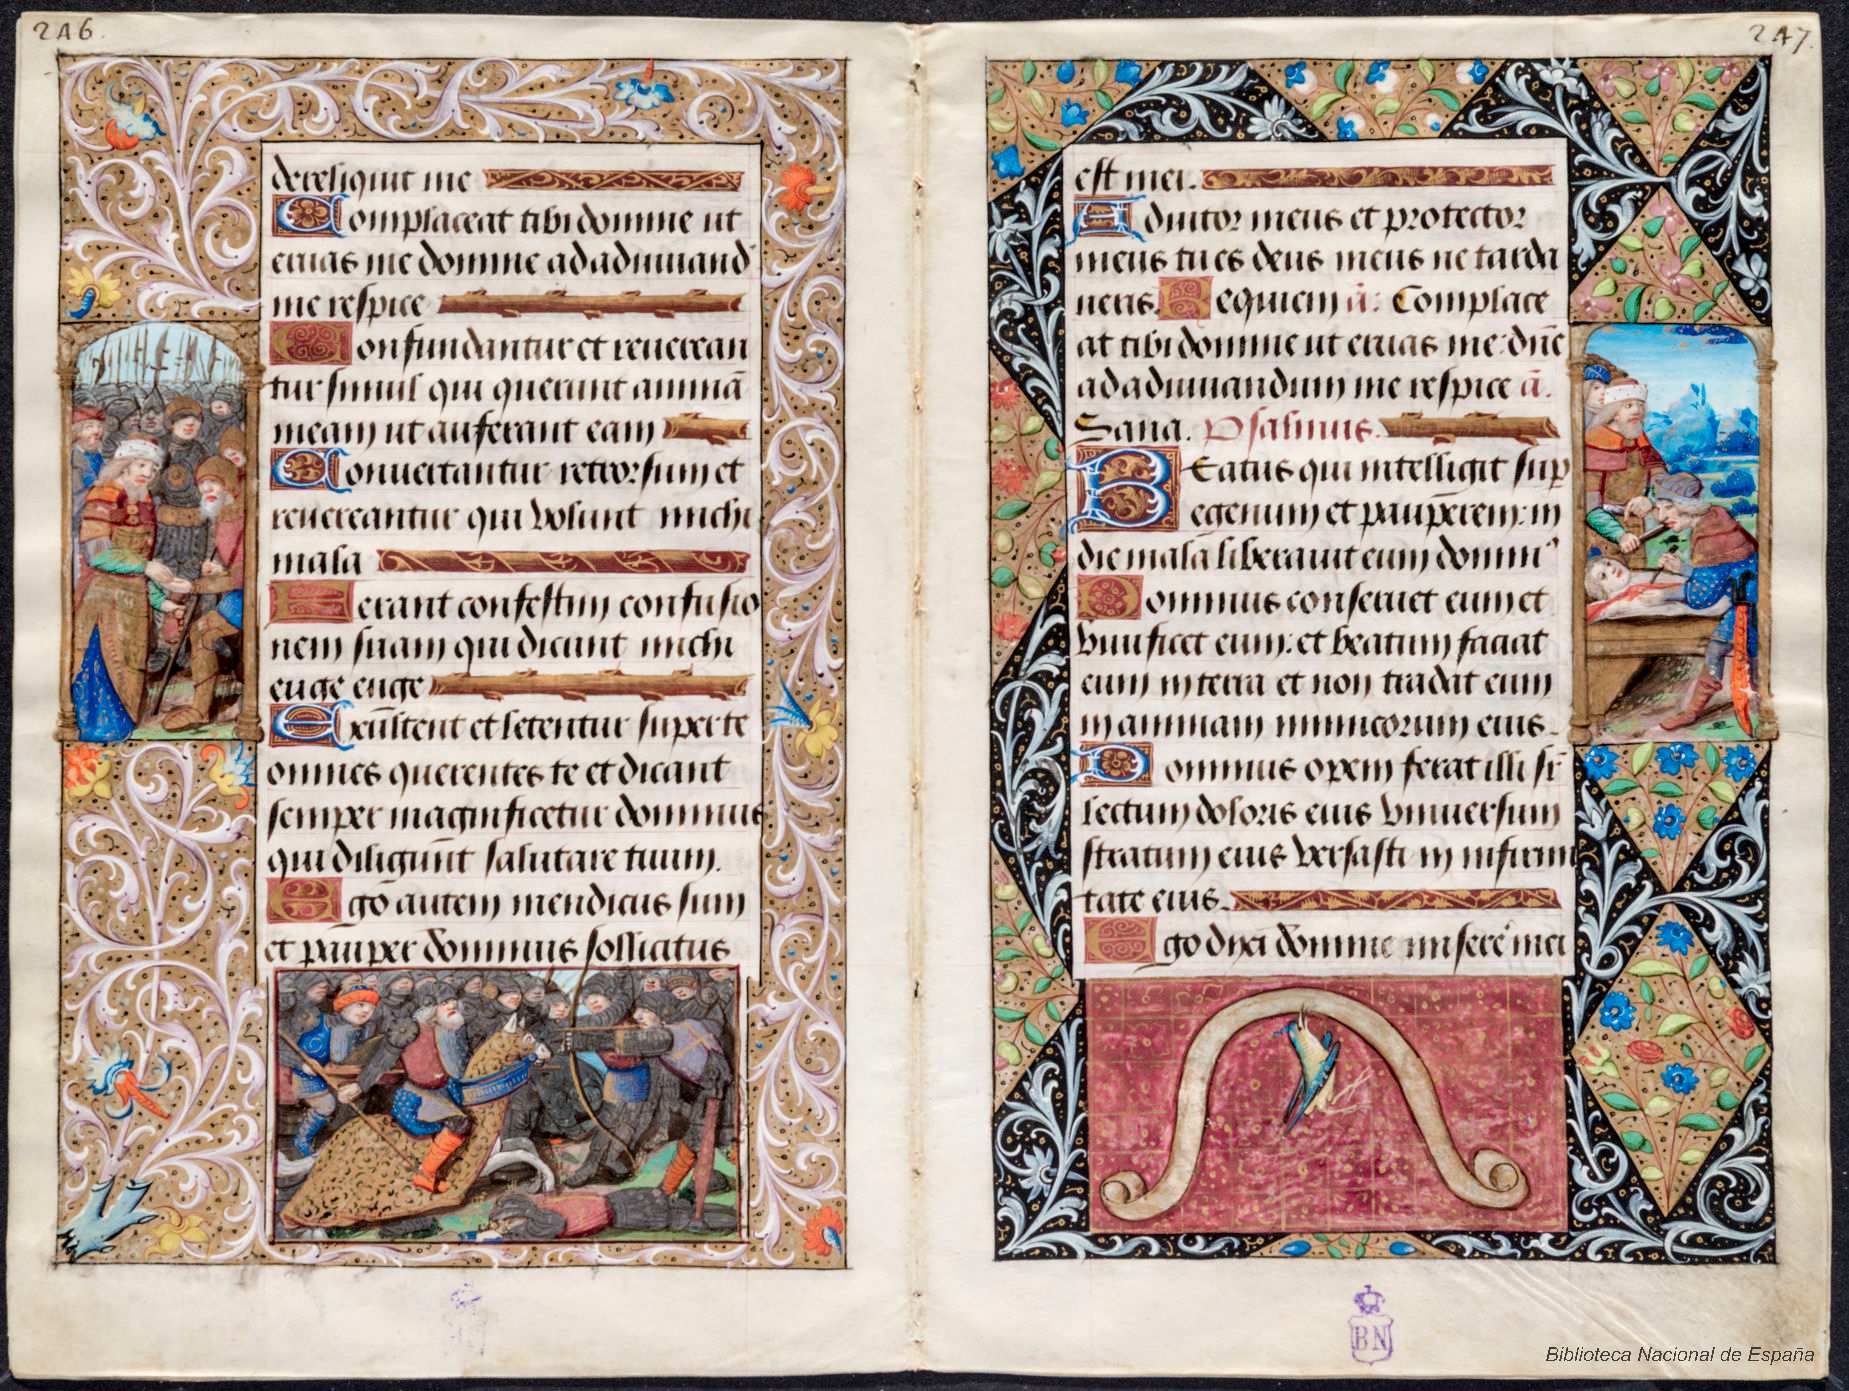 246.
dereliquit me
Complaceat tibi domine ut
eruas me domine ad adiuuand'
me respice
Confundantur et reuerean
tur simul qui querunt animā
meam ut auferant eam
Conuertantur retrorsum et
reuereantur qui volunt michi
mala
Ferant confestim confusio
nem suam qui dicunt michi
euge euge
Exultent et letentur super te
omnes querentes te et dicant
semper magnificetur dominus
qui diligunt salutare tuum.
Ego autem mendicus sum
et pauper dominus sollicitus
247.
est mei.
Adiutor meus et protector
meus tu es deus meus ne tarda
ueris. Requiem ā. Complace
at tibi domine ut eruas me: dn̄e
ad adiuuandum me respice ā.
Sana. Psalmus.
Beatus qui intelligit sup̄
egenum et paup̄erem: in
die mala liberauit eum domin'
Dominus conseruet eum et
viuificet eum: et beatum faciat
eum in terra et non tradat eum
in animam inimicorum eius.
Dominus opem ferat illi sr̄
lectum doloris eius vniuersum
stratum eius versasti in infirmi
tate eius.
Ego dixi domine miserere mei
BN
Biblioteca Nacional de España